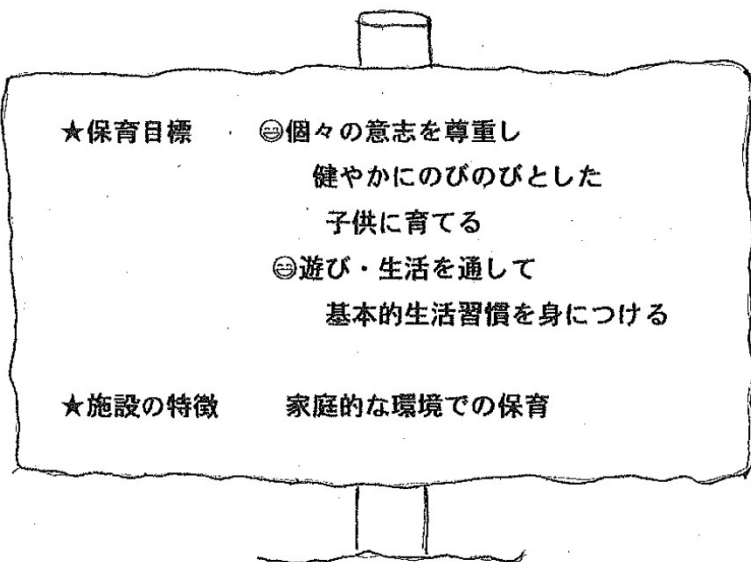 ★保育目標 😄個々の意志を尊重し
健やかにのびのびとした
子供に育てる
😄遊び・生活を通して
基本的生活習慣を身につける
★施設の特徴 家庭的な環境での保育